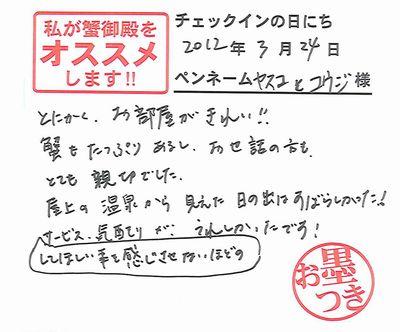 私が蟹御殿を
オススメ
します!!
チェックインの日にち
2012年3月24日
ペンネームヤスコとコウジ様
とにかく、お部屋がきれい!!
蟹もたっぷりあるし、お世話の方も、
とても親切でした。
屋上の温泉から見えた日の出はすばらしかった!!
サービス、気配りが、うれしかったです!
してほしい事を感じさせないほどの
お墨つき